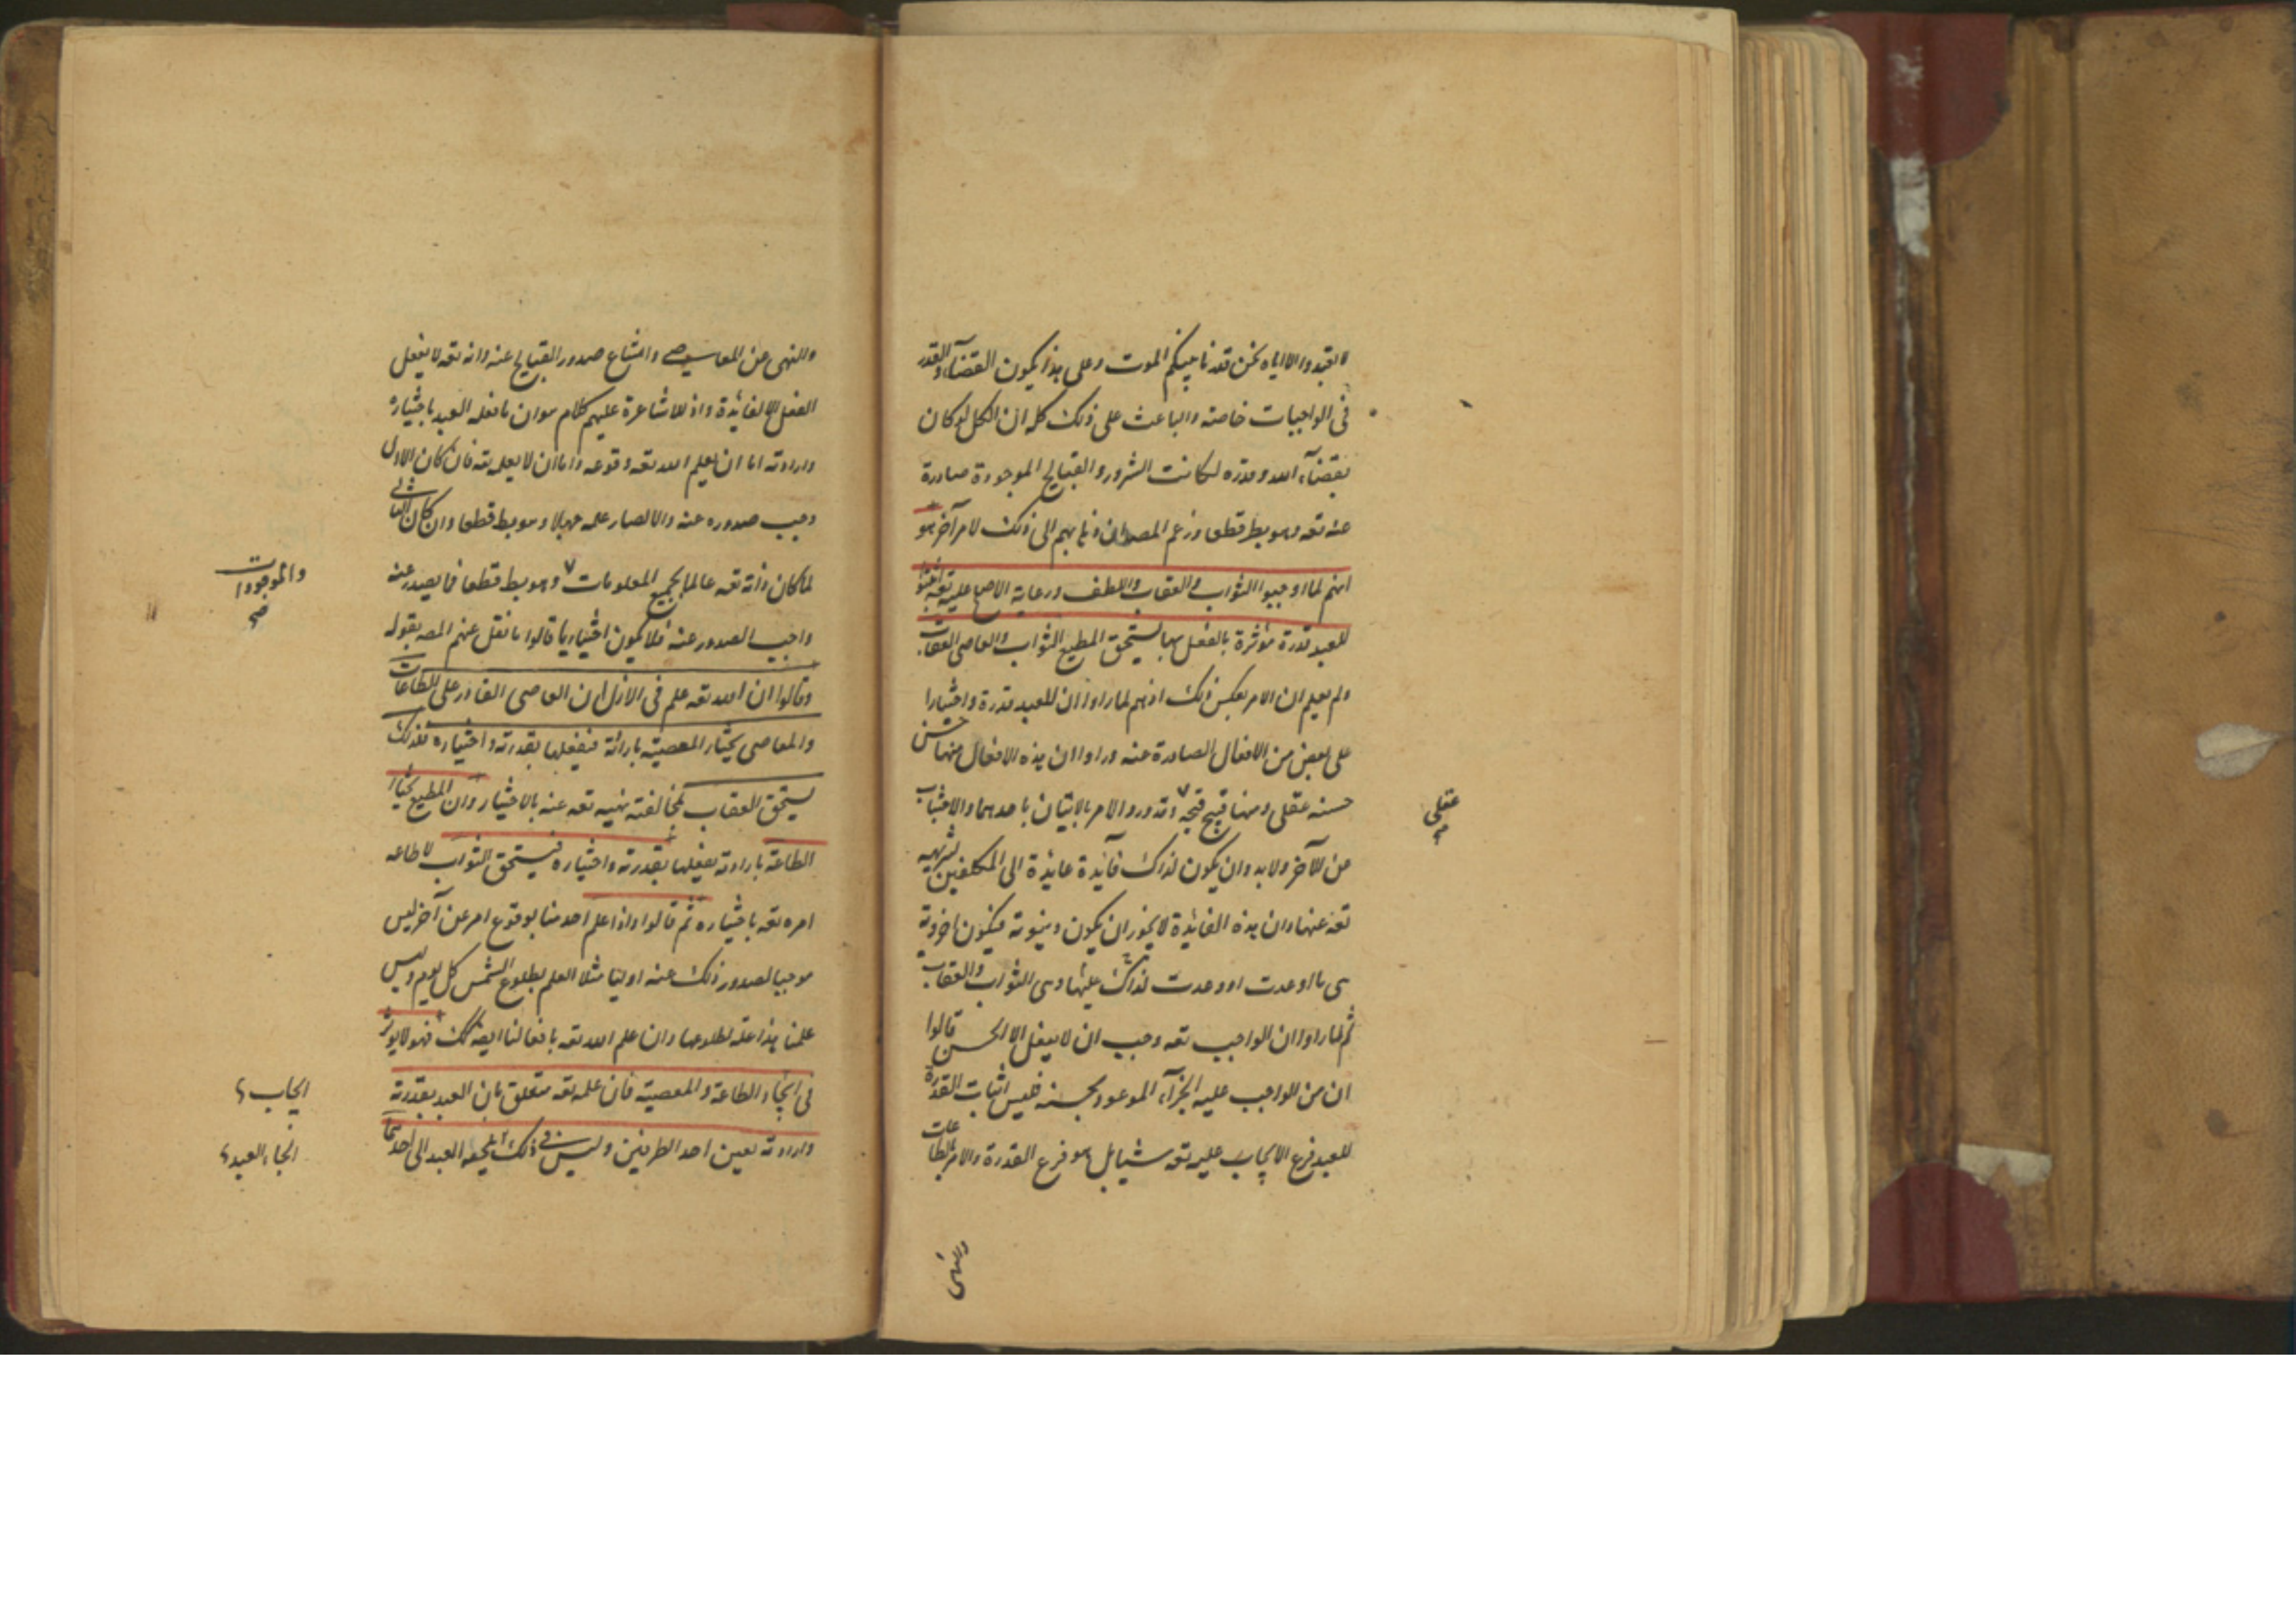 لا تعبدوا الا اياه نحن قدرنا بينكم الموت وعلى هذا يكون القضاء والقدر
فى الواجبات خاصة والباعث على ذلك كله ان الكل لو كان
بقضاء الله وقدره لكانت الشرور والقبايح الموجودة صادرة
عنه تعه وهو بط قطعا وزعم المصه ان ذهابهم الى ذلك لامر آخر هو
انهم لما اوجبوا الثواب والعقاب واللطف ورعاية الاصلح عليه تعه
للعبد قدرة مؤثرة بالفعل بها يستحق المطيع الثواب والعاصى العقاب
ولم يعلم ان الامر بعكس ذلك اذ هم لما راوا ان للعبد قدرة واختيارا
على بعض من الافعال الصادرة عنه وراوا ان هذه الافعال منها حسن
حسنه عقلى ومنها قبيح قبحه وقد ورد الامر بالاتيان باحدهما والاجتناب
عقلى صح
من الآخر ولا بد وان يكون لذلك فآيدة عايدة الى المكلفين
تعه عنها وان هذه الفائدة لا يجوز ان يكون دينوية فيكون اخروية
هى ما اوعدت او وعدت لذلك عليها وهى الثواب والعقاب
ثم لما راوا ان الواجب تعه وجب ان لا يفعل الا الحسن قالوا
ان من الواجب عليه الجزآء الموعود بحسنه فليس اثبات القدرة
للعبد فرع الايجاب عليه تعه شيا بل هو فرع القدرة والامر بالطاعات
والنهى
والنهى عن المعاصى وامتناع صدور القبايح عنه وانه تعه لا يفعل
الفعل الا لفائدة واذ للاشاعرة عليهم كلام هو ان ما فعله العبد باختياره
وارادته اما ان يعلم الله تعه وقوعه واما ان لا يعلمه تعه فان كان الاول
وجب صدوره عنه والا لصار علمه جهلا وهو بط قطعا وان كان الثانى
لما كان ذاته تعه عالما بجميع المعلومات وهو بط قطعا فما يصدر عنه
والموجودات صح
واجب الصدور عنه فلا يكون اختياريا قالوا ما نقل عنهم المصه بقوله
وقالوا ان الله تعه علم فى الازل ان العاصى القادر على الطاعات
والمعاصى يختار المعصية بارادته فيفعلها بقدرته واختياره فلذلك
يستحق العقاب لمخالفته نهيه تعه عنه بالاختيار وان المطيع يختار
الطاعة بارادته يفعلها بقدرته واختياره فيستحق الثواب لاطاعه
امره تعه باختياره ثم قالوا واذا علم احد منا بوقوع امر عن آخر ليس
موجبا لصدور ذلك عنه اولينا مثلا العلم بطلوع الشمس كل يوم وليس
علمنا هذا علة لطلوعها وان علم الله تعه بافعالنا ايضه كك فهو لا يؤثر
فى ايجاد الطاعة والمعصية فان علمه تعه متعلق بان العبد بقدرته
ايجاب
وارادته يعين احد الطرفين وليس فى ذلك العبد الى احدهما
الجاء العبد